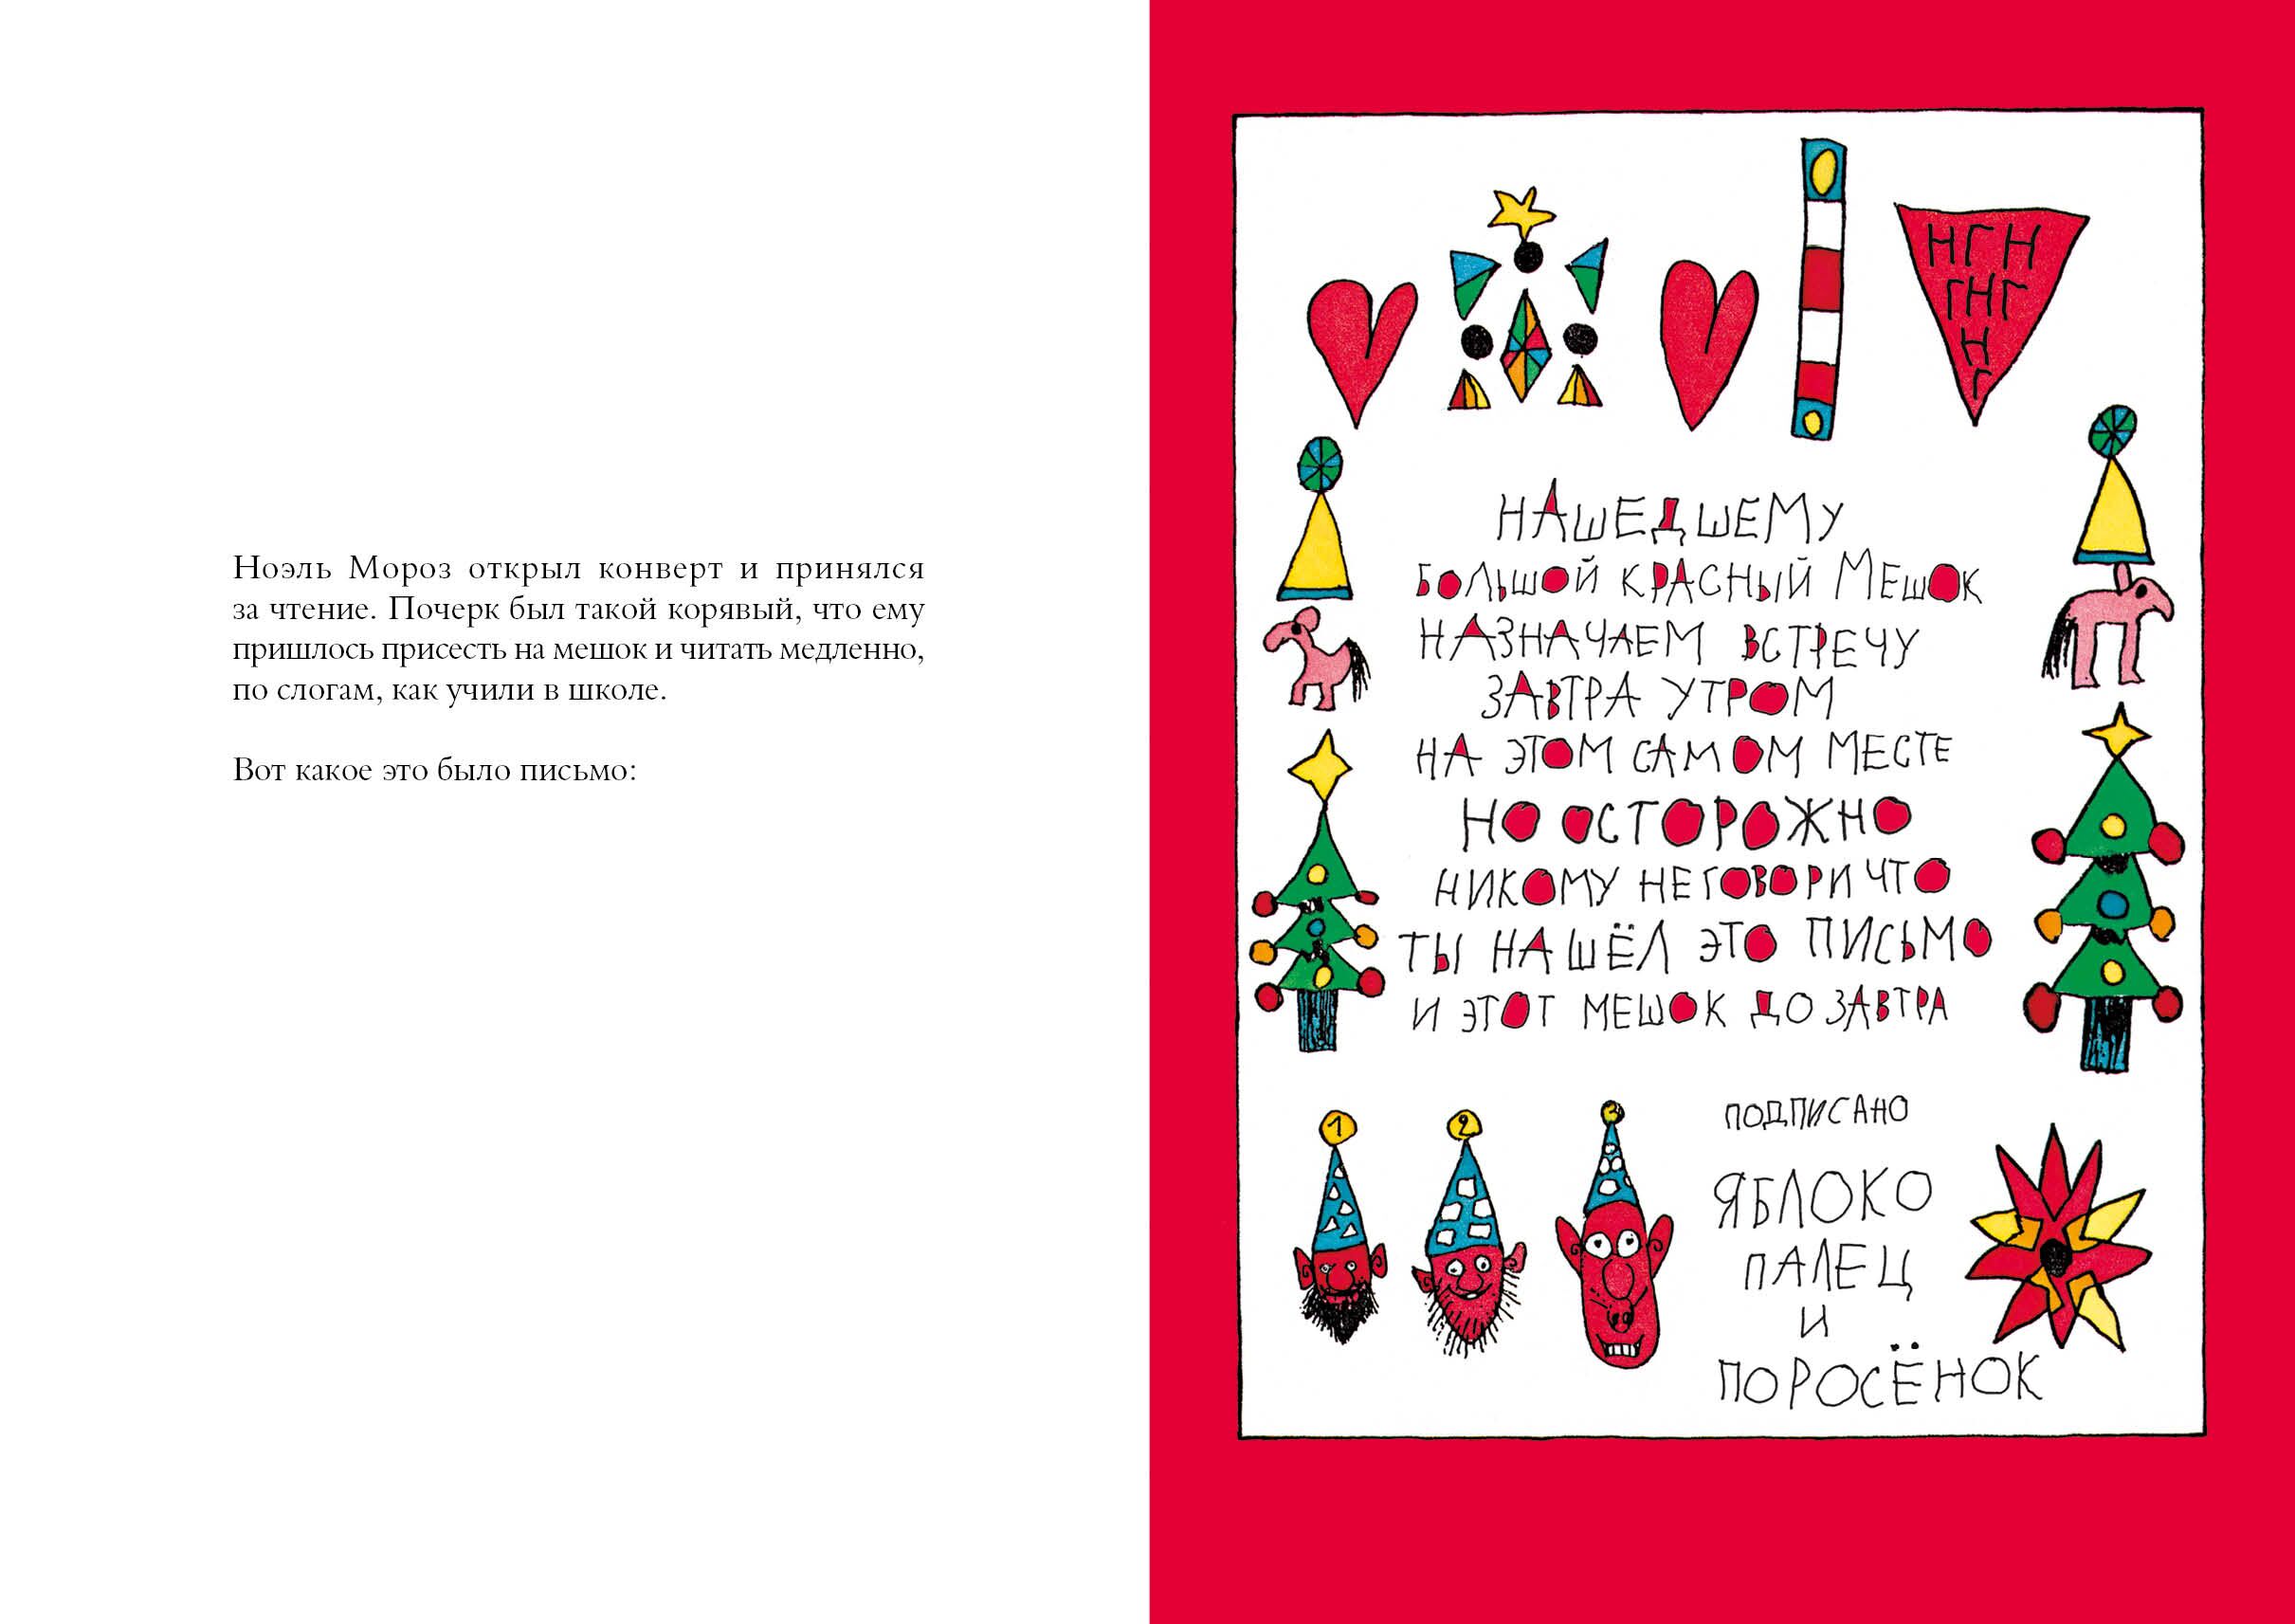 Ноэль Мороз открыл конверт и принялся
за чтение. Почерк был такой корявый, что ему
пришлось присесть на мешок и читать медленно,
по слогам, как учили в школе.
Вот какое это было письмо:
НГН
ГНГ
Н
Г
НАШЕДШЕМУ
БОЛЬШОЙ КРАСНЫЙ МЕШОК
НАЗНАЧАЕМ ВСТРЕЧУ
ЗАВТРА УТРОМ
НА ЭТОМ САМОМ МЕСТЕ
НО ОСТОРОЖНО
НИКОМУ НЕ ГОВОРИ ЧТО
ТЫ НАШЁЛ ЭТО ПИСЬМО
И ЭТОТ МЕШОК ДО ЗАВТРА
1 2 3
ПОДПИСАНО
ЯБЛОКО
ПАЛЕЦ
И
ПОРОСЁНОК